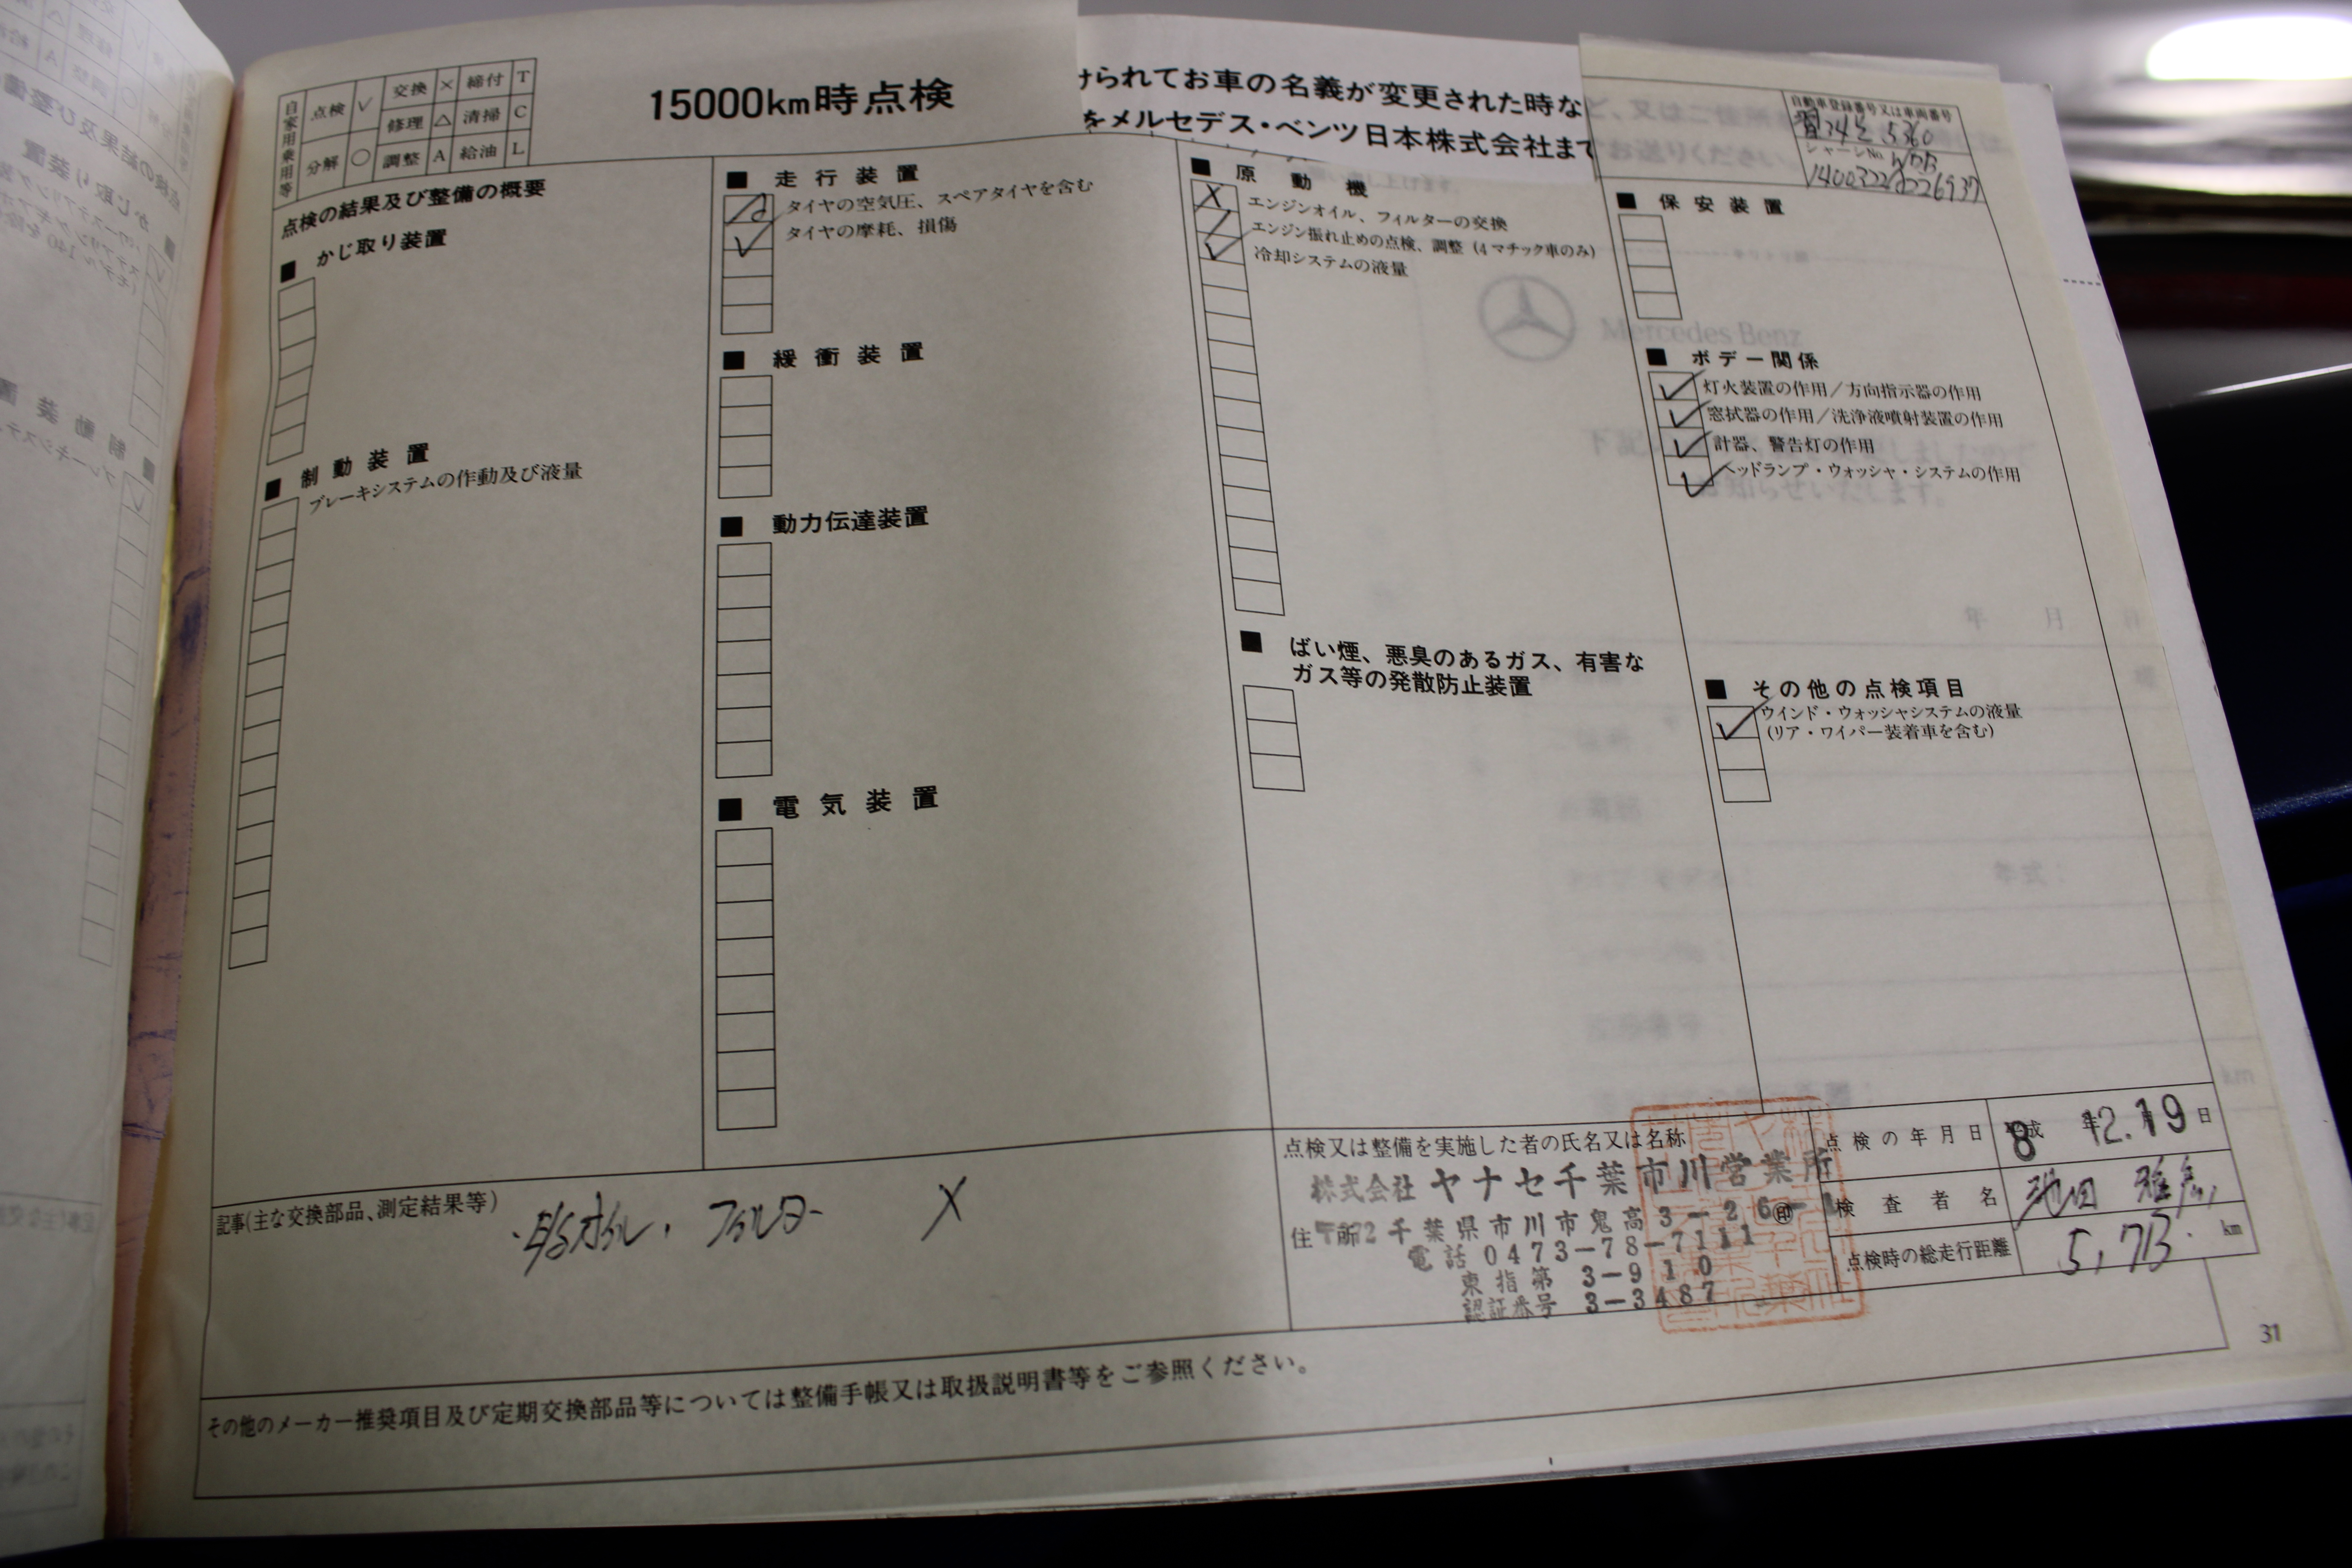 自家用乗用等
点検 ✓ 交換 × 締付 T
修理 △ 清掃 C
分解 ○ 調整 A 給油 L
15000km時点検
けられてお車の名義が変更された時な
をメルセデス・ベンツ日本株式会社まで
自動車登録番号又は車両番号
シャーシNo. WDB
点検の結果及び整備の概要
■ かじ取り装置
■ 制動装置
ブレーキシステムの作動及び液量
■ 走行装置
タイヤの空気圧、スペアタイヤを含む
✓ タイヤの摩耗、損傷
■ 緩衝装置
■ 動力伝達装置
■ 電気装置
■ 原動機
X エンジンオイル、フィルターの交換
／ エンジン振れ止めの点検、調整（4マチック車のみ）
✓ 冷却システムの液量
■ ばい煙、悪臭のあるガス、有害な
ガス等の発散防止装置
■ 保安装置
Mercedes-Benz
■ ボデー関係
✓ 灯火装置の作用／方向指示器の作用
✓ 窓拭器の作用／洗浄液噴射装置の作用
✓ 計器、警告灯の作用
✓ ヘッドランプ・ウォッシャ・システムの作用
■ その他の点検項目
✓ ウインド・ウォッシャシステムの液量
(リア・ワイパー装着車を含む)
記事(主な交換部品、測定結果等)
オイル、フィルター X
点検又は整備を実施した者の氏名又は名称
株式会社 ヤナセ千葉市川営業所
住所 千葉県市川市鬼高3-26-1 ㊞
電話 0473-78-7111
東指第 3-910
認証番号 3-3487
点検の年月日 平成 8年 12.月 19日
検査者名 池田
点検時の総走行距離 5,713 km
その他のメーカー推奨項目及び定期交換部品等については整備手帳又は取扱説明書等をご参照ください。
31